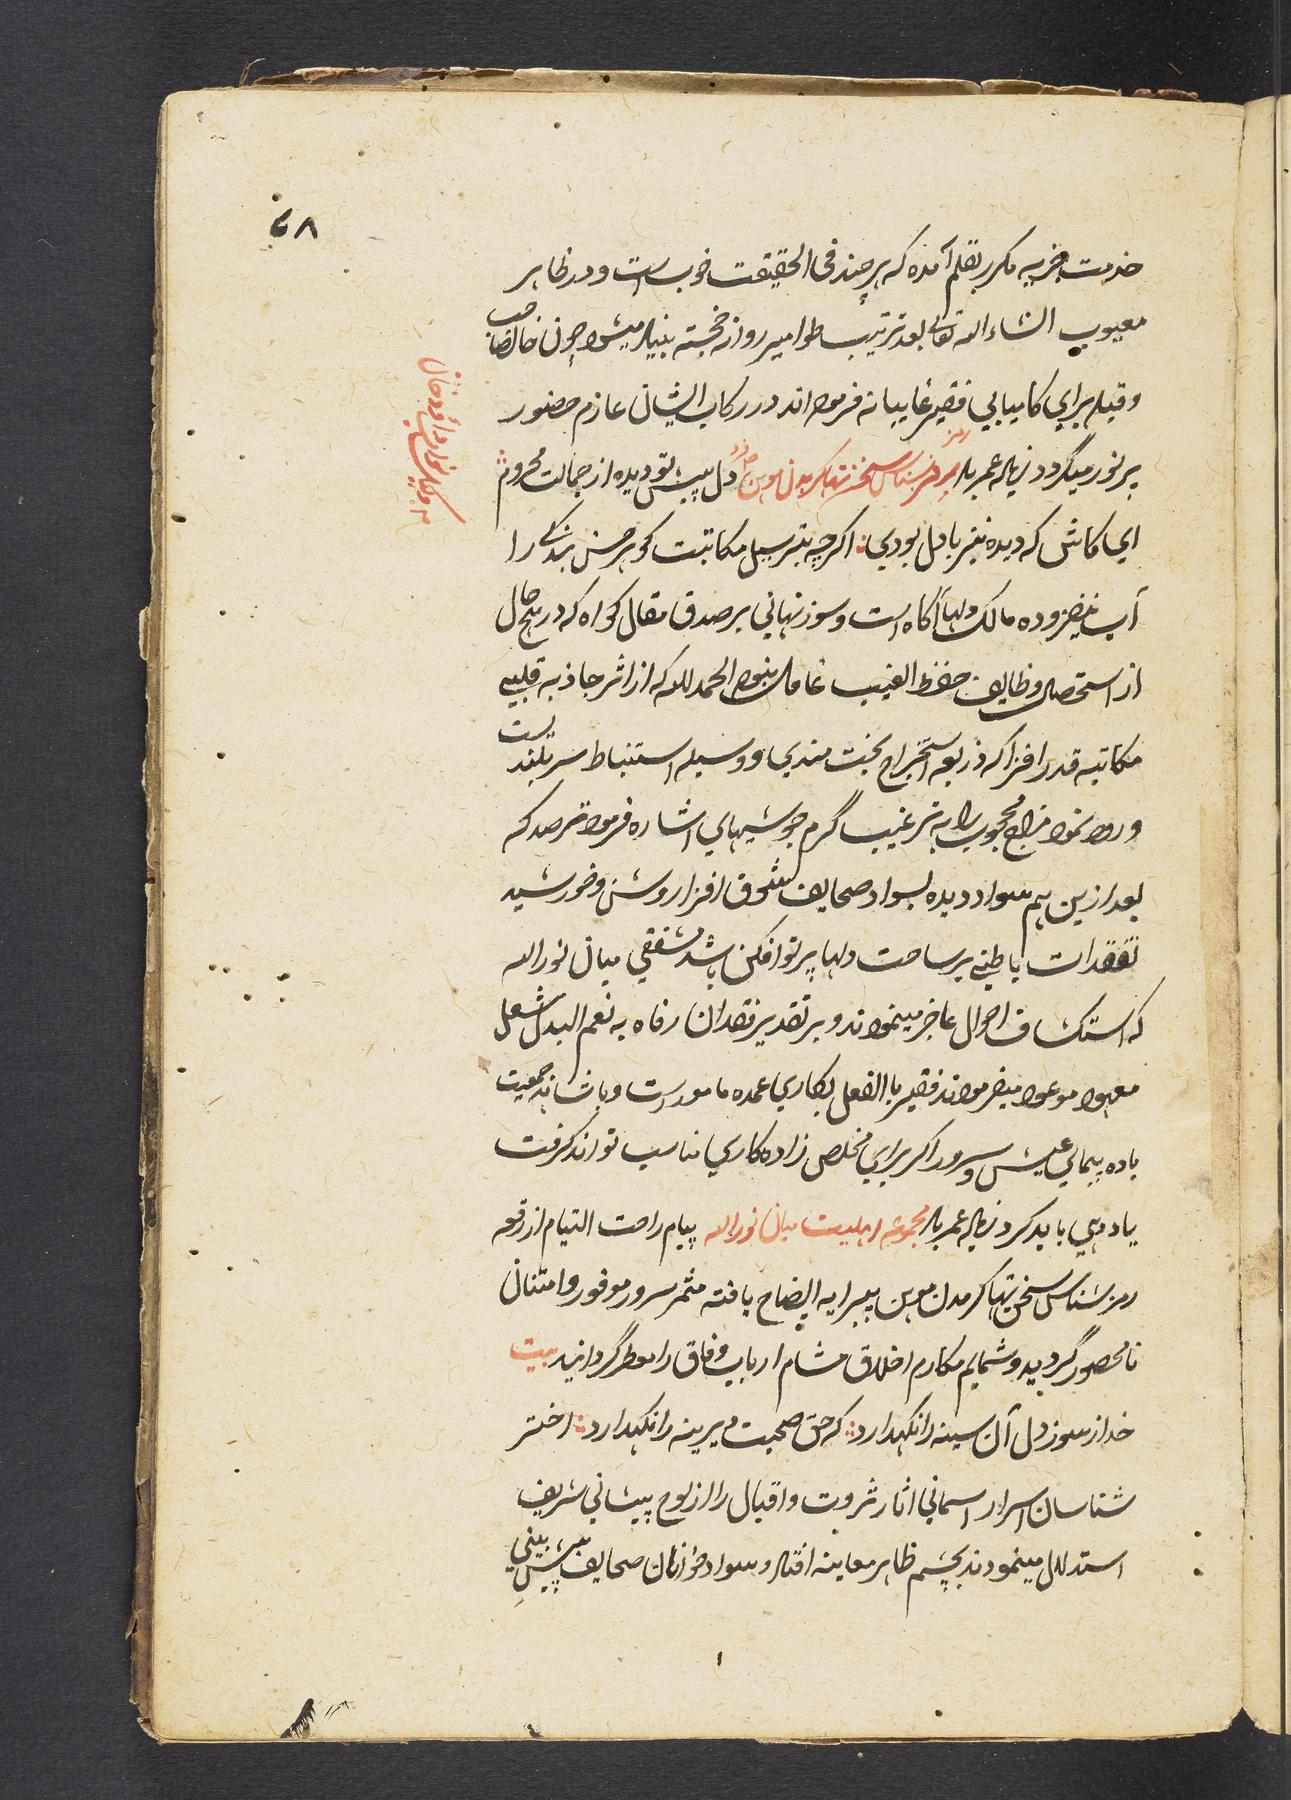 ۶۸
خدمت بخریه مکرر بقلم آمده که هر چند فی الحقیقت خوب است و در ظاهر
معیوب انشاء الله تعالی بعد ترتیب طوامیر روانه خجسته بنیاد میشود چون خانصاحب
وقبله برای کامیابی فقیر غایبانه فرموده اند در رکاب ایشان عازم حضور
پرنور میگردد زیاده عمر باد رمز شناس سخن تنها کرمدن موہن دل پیش تو دیده از جمالت محروم
ای کاش که دیده نیز با دل بودی اگرچه بترسیل مکاتبت گوهر حسن بندگی را
آب نیفزوده مالک دلها آگاه است و سوز نهانی بر صدق مقال گواه که در هیچ حال
از استحصال وظایف حفظ الغیب غافل نبوده الحمد لله که از اثر جاذبه قلبیه
مکاتبه قدر افزا که ذریعه استخراج بخت مندی و وسیله استنباط سربلندیست
ورود نمود مزاج محجوب را به ترغیب گرم جوشیهای اشاره فرموده مترصد که
بعد ازین هم سواد دیده بسواد صحایف شوق افزا روشن و خورشید
تفقدات باطنی بر ساحت دلها پرتو افکن باشد مشفقی میان نور الله
که استکشاف احوال عاجز مینمودند و بر تقدیر فقدان رفاه به نعم البدل شغل
معهود موعود میفرمودند فقیر بالفعل بکاری عمده مامورست و باشاند جمعیت
باده پیمای عیش و سرور اگر برای مخلص زاده کاری مناسب تواند گرفت
یاددهی باید کرد زیاده عمر باد مجموعه اهلیت میان نور الله پیام راحت التیام از رقعه
رمز شناس سخن تنها کرمدن موهن پیرایه ایضاح یافته مثمر سرور موفور و امتنان
نامحصور گردید و شمایم مکارم اخلاق مشام ارباب وفاق را معطر گردانید بیت
خدا از سوز دل آن سینه را نگهدارد که حق صحبت دیرینه را نگهدارد اختر
شناسان اسرار آسمانی اثار ثروت و اقبال را از لوح پیشانی شریف
استدلال مینمودند بچشم ظاهر معاینه افتاد و سواد خوانان صحایف پیش بینی